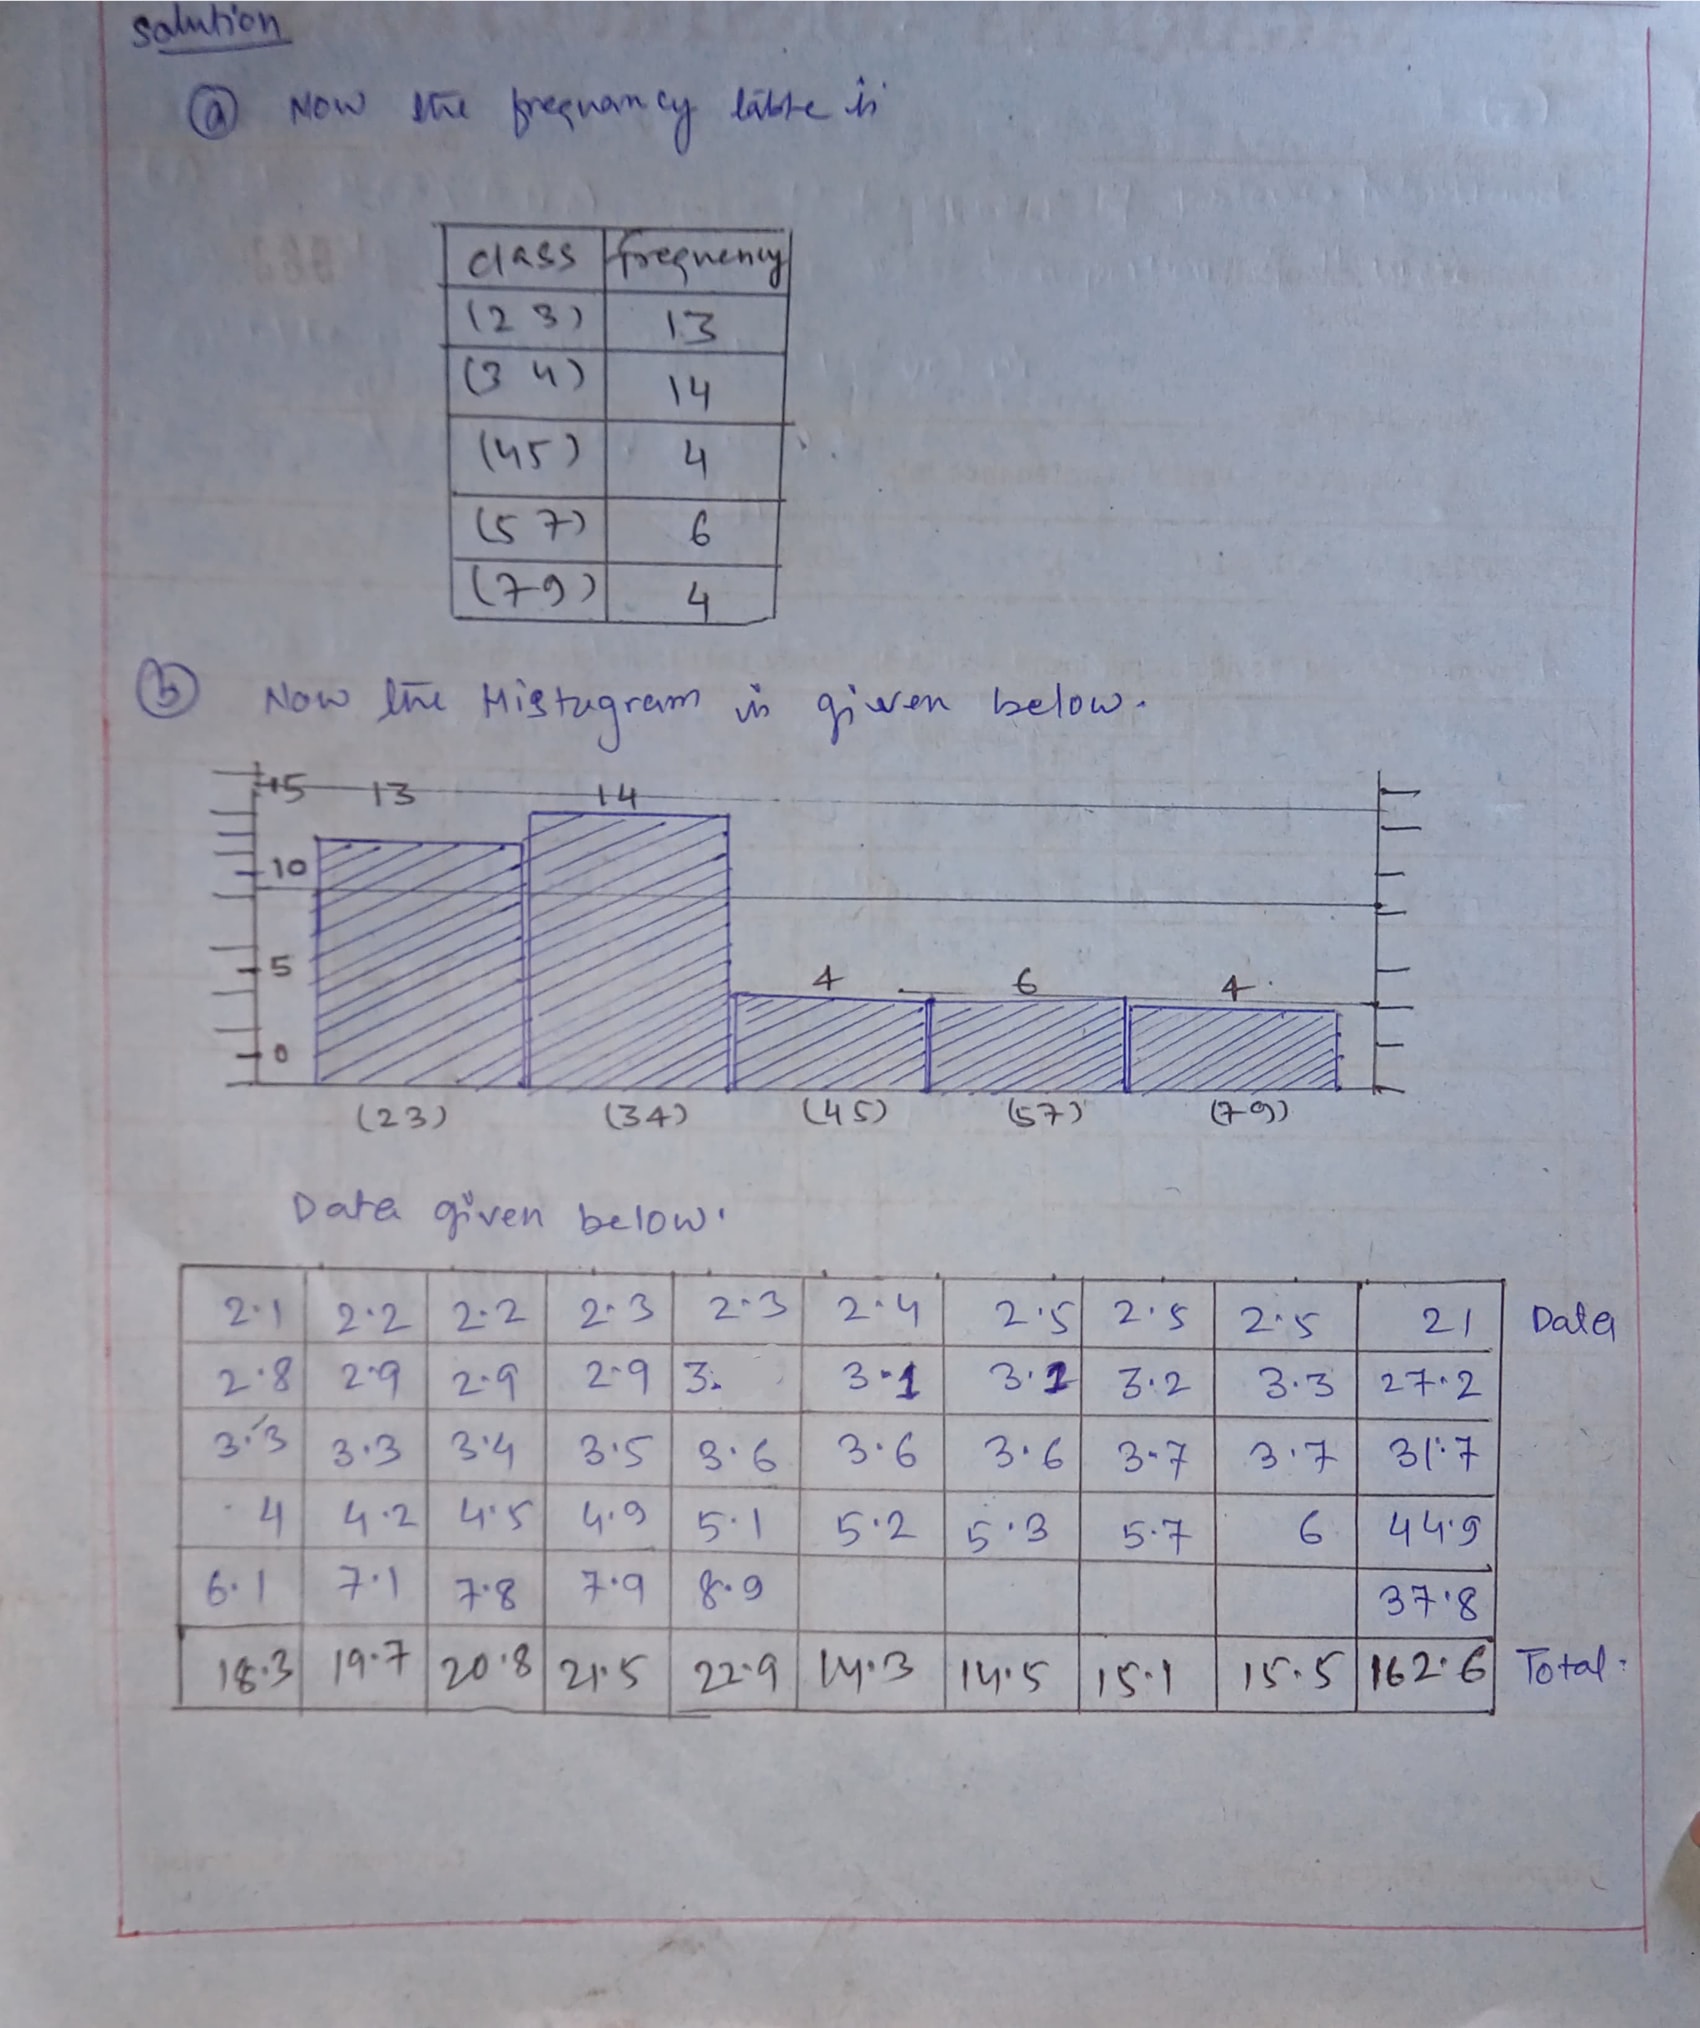 Solution
(a) Now the frequancy table is
class frequency
(2 3) 13
(3 4) 14
(45) 4
(5 7) 6
(79) 4
(b) Now the Histugram is given below.
15 13 14
10
5 4 6 4
0
(23) (34) (45) (57) (79)
Data given below.
2.1 2.2 2.2 2.3 2.3 2.4 2.5 2.5 2.5 21 Data
2.8 2.9 2.9 2.9 3. 3.1 3.1 3.2 3.3 27.2
3.3 3.3 3.4 3.5 3.6 3.6 3.6 3.7 3.7 31.7
4 4.2 4.5 4.9 5.1 5.2 5.3 5.7 6 44.9
6.1 7.1 7.8 7.9 8.9 37.8
18.3 19.7 20.8 21.5 22.9 14.3 14.5 15.1 15.5 162.6 Total.